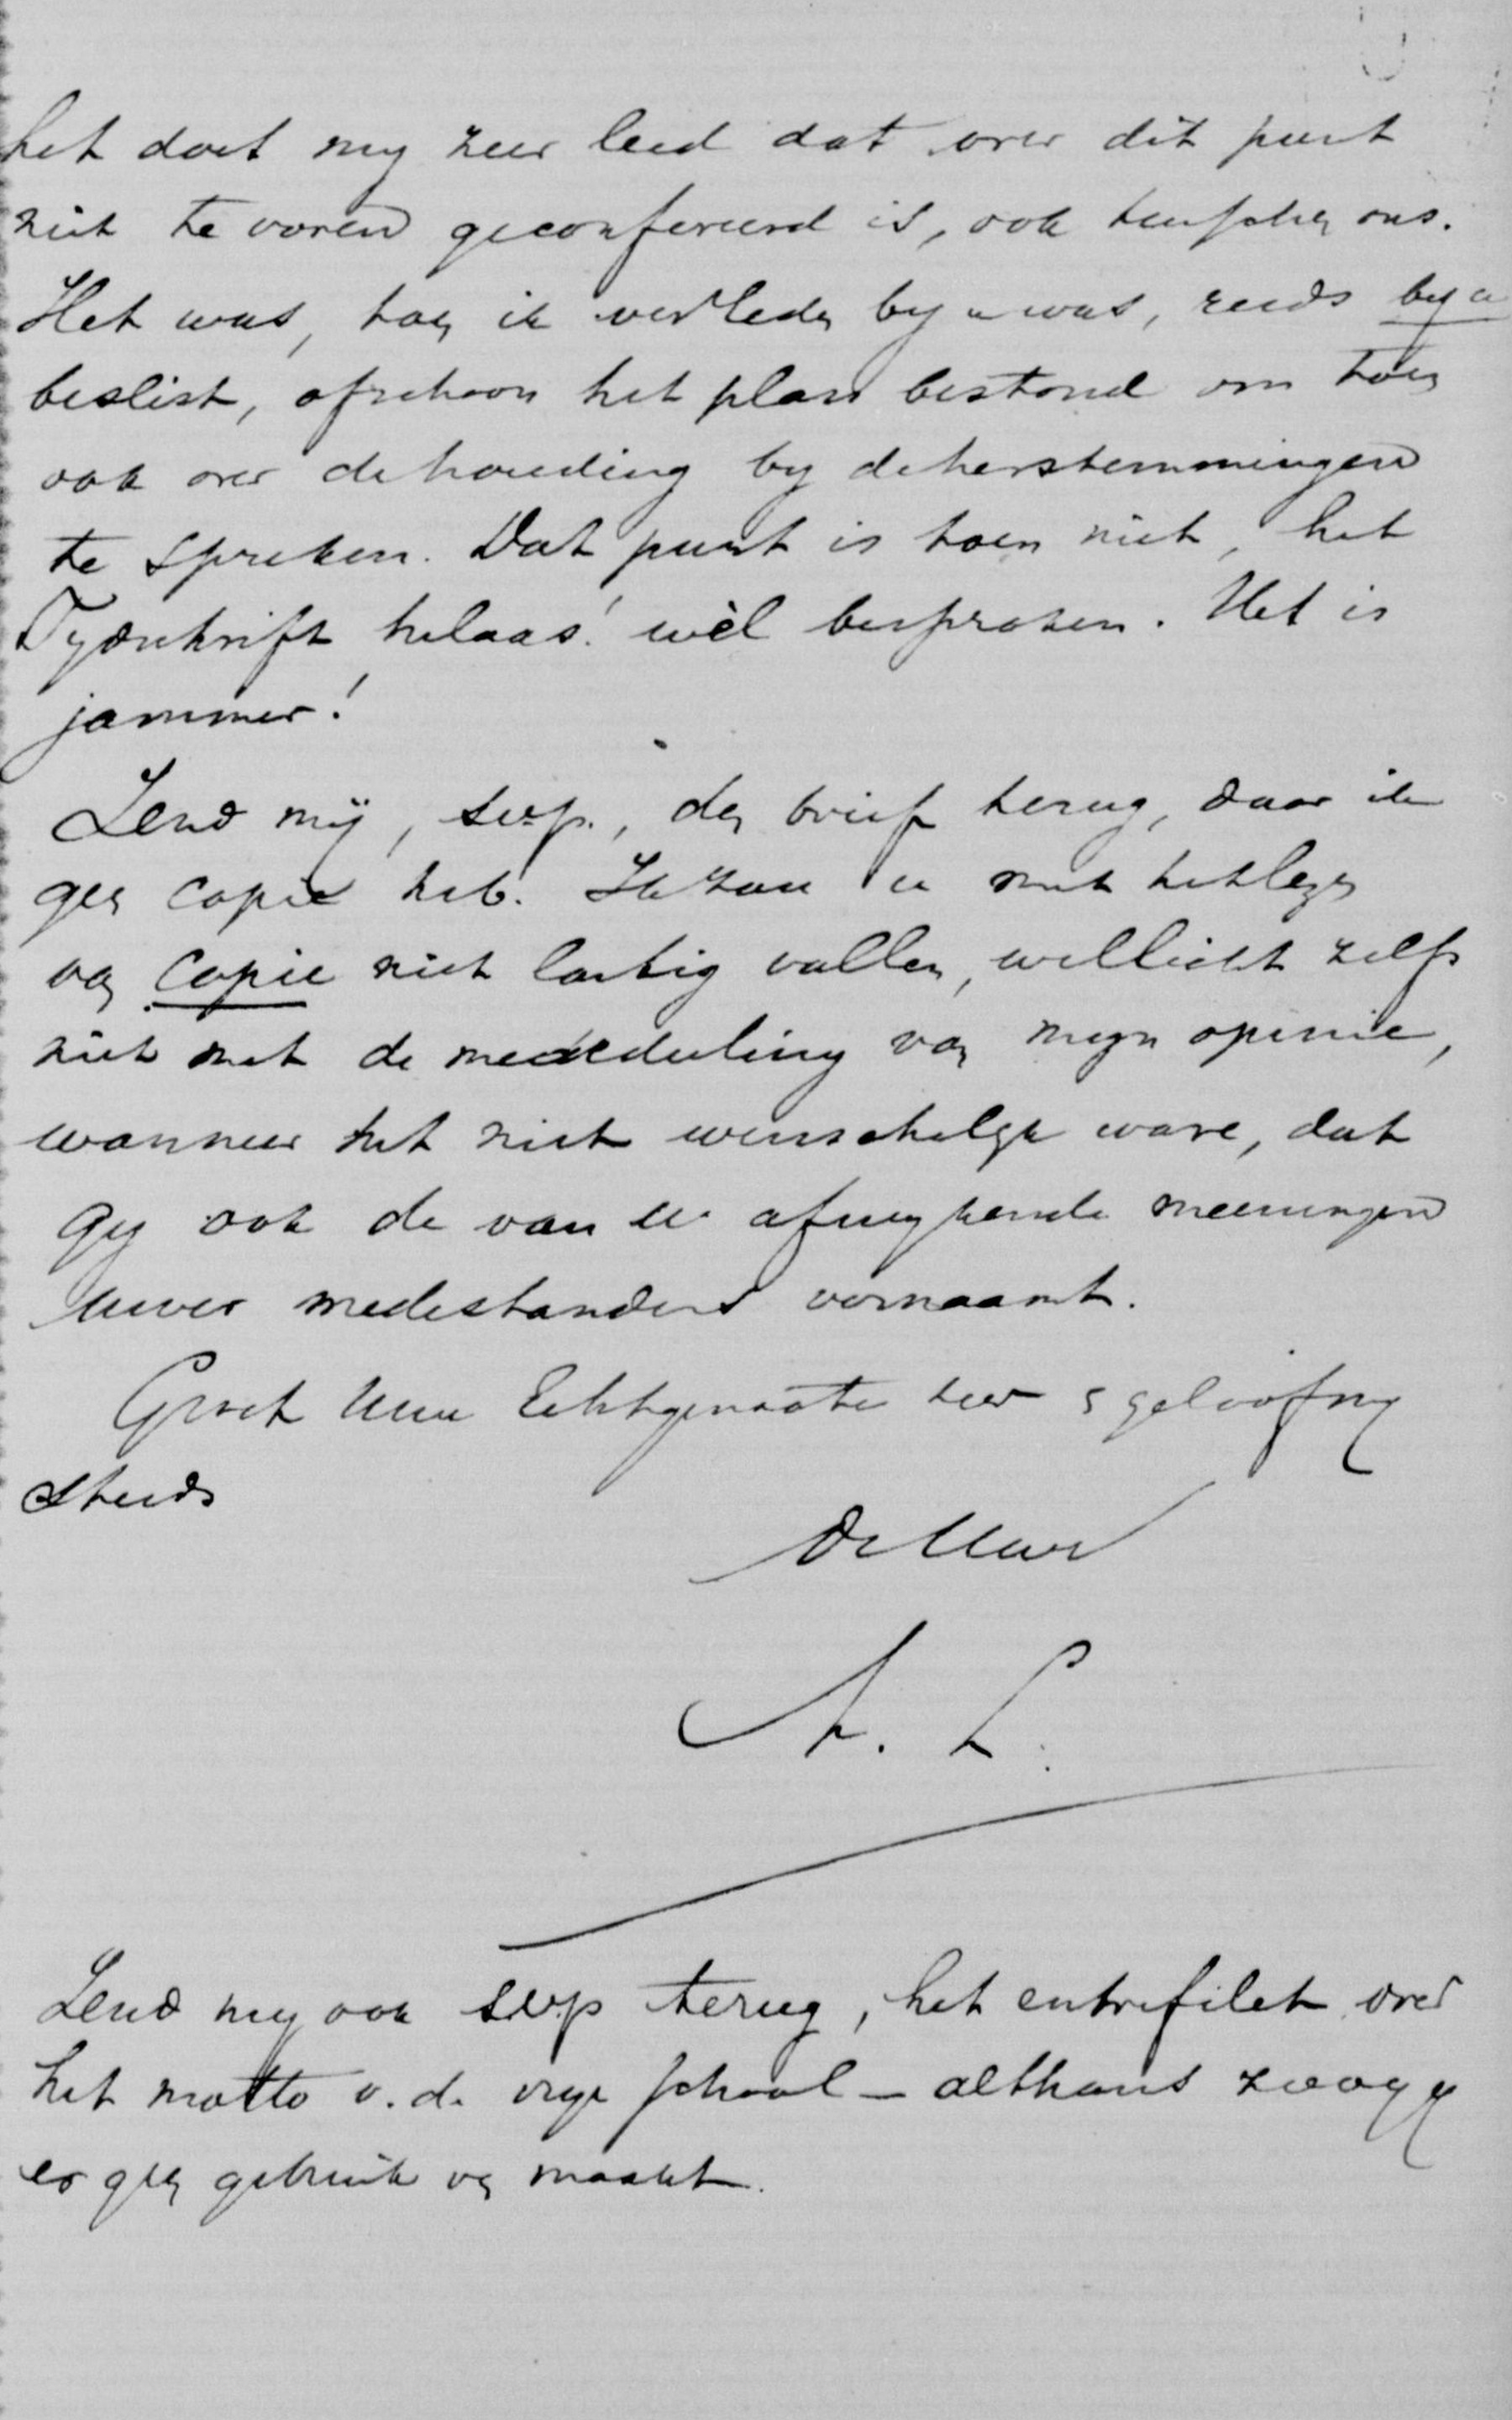 het doet my zeer leed dat over dit punt
niet te voren geconfereerd is, ook tusschen ons.
Het was, toen ik verleden by u was, reeds by u
beslist, ofschoon het plan bestond om toen
ook over de houding by de herstemmingen
te spreken. Dat punt is toen niet, het
Tydschrift helaas! wèl besproken. Het is
jammer!
Zend mij, svp., den brief terug, daar ik
geen copie heb. Ik zou u met het lezen
van copie niet lastig vallen, wellicht zelfs
niet met de mededeeling van myn opinie,
wanneer het niet wenschelyk ware, dat
Gy ook de van U afwykende meeningen
Uwer medestanders vernaamt.
Groet Uwe Echtgenoote zeer & geloof my
steeds
de Uwe
A. L.
Zend my ook svp terug, het entrefilet over
het motto v.d. vrye school - althans zoo gy
er geen gebruik van maakt.